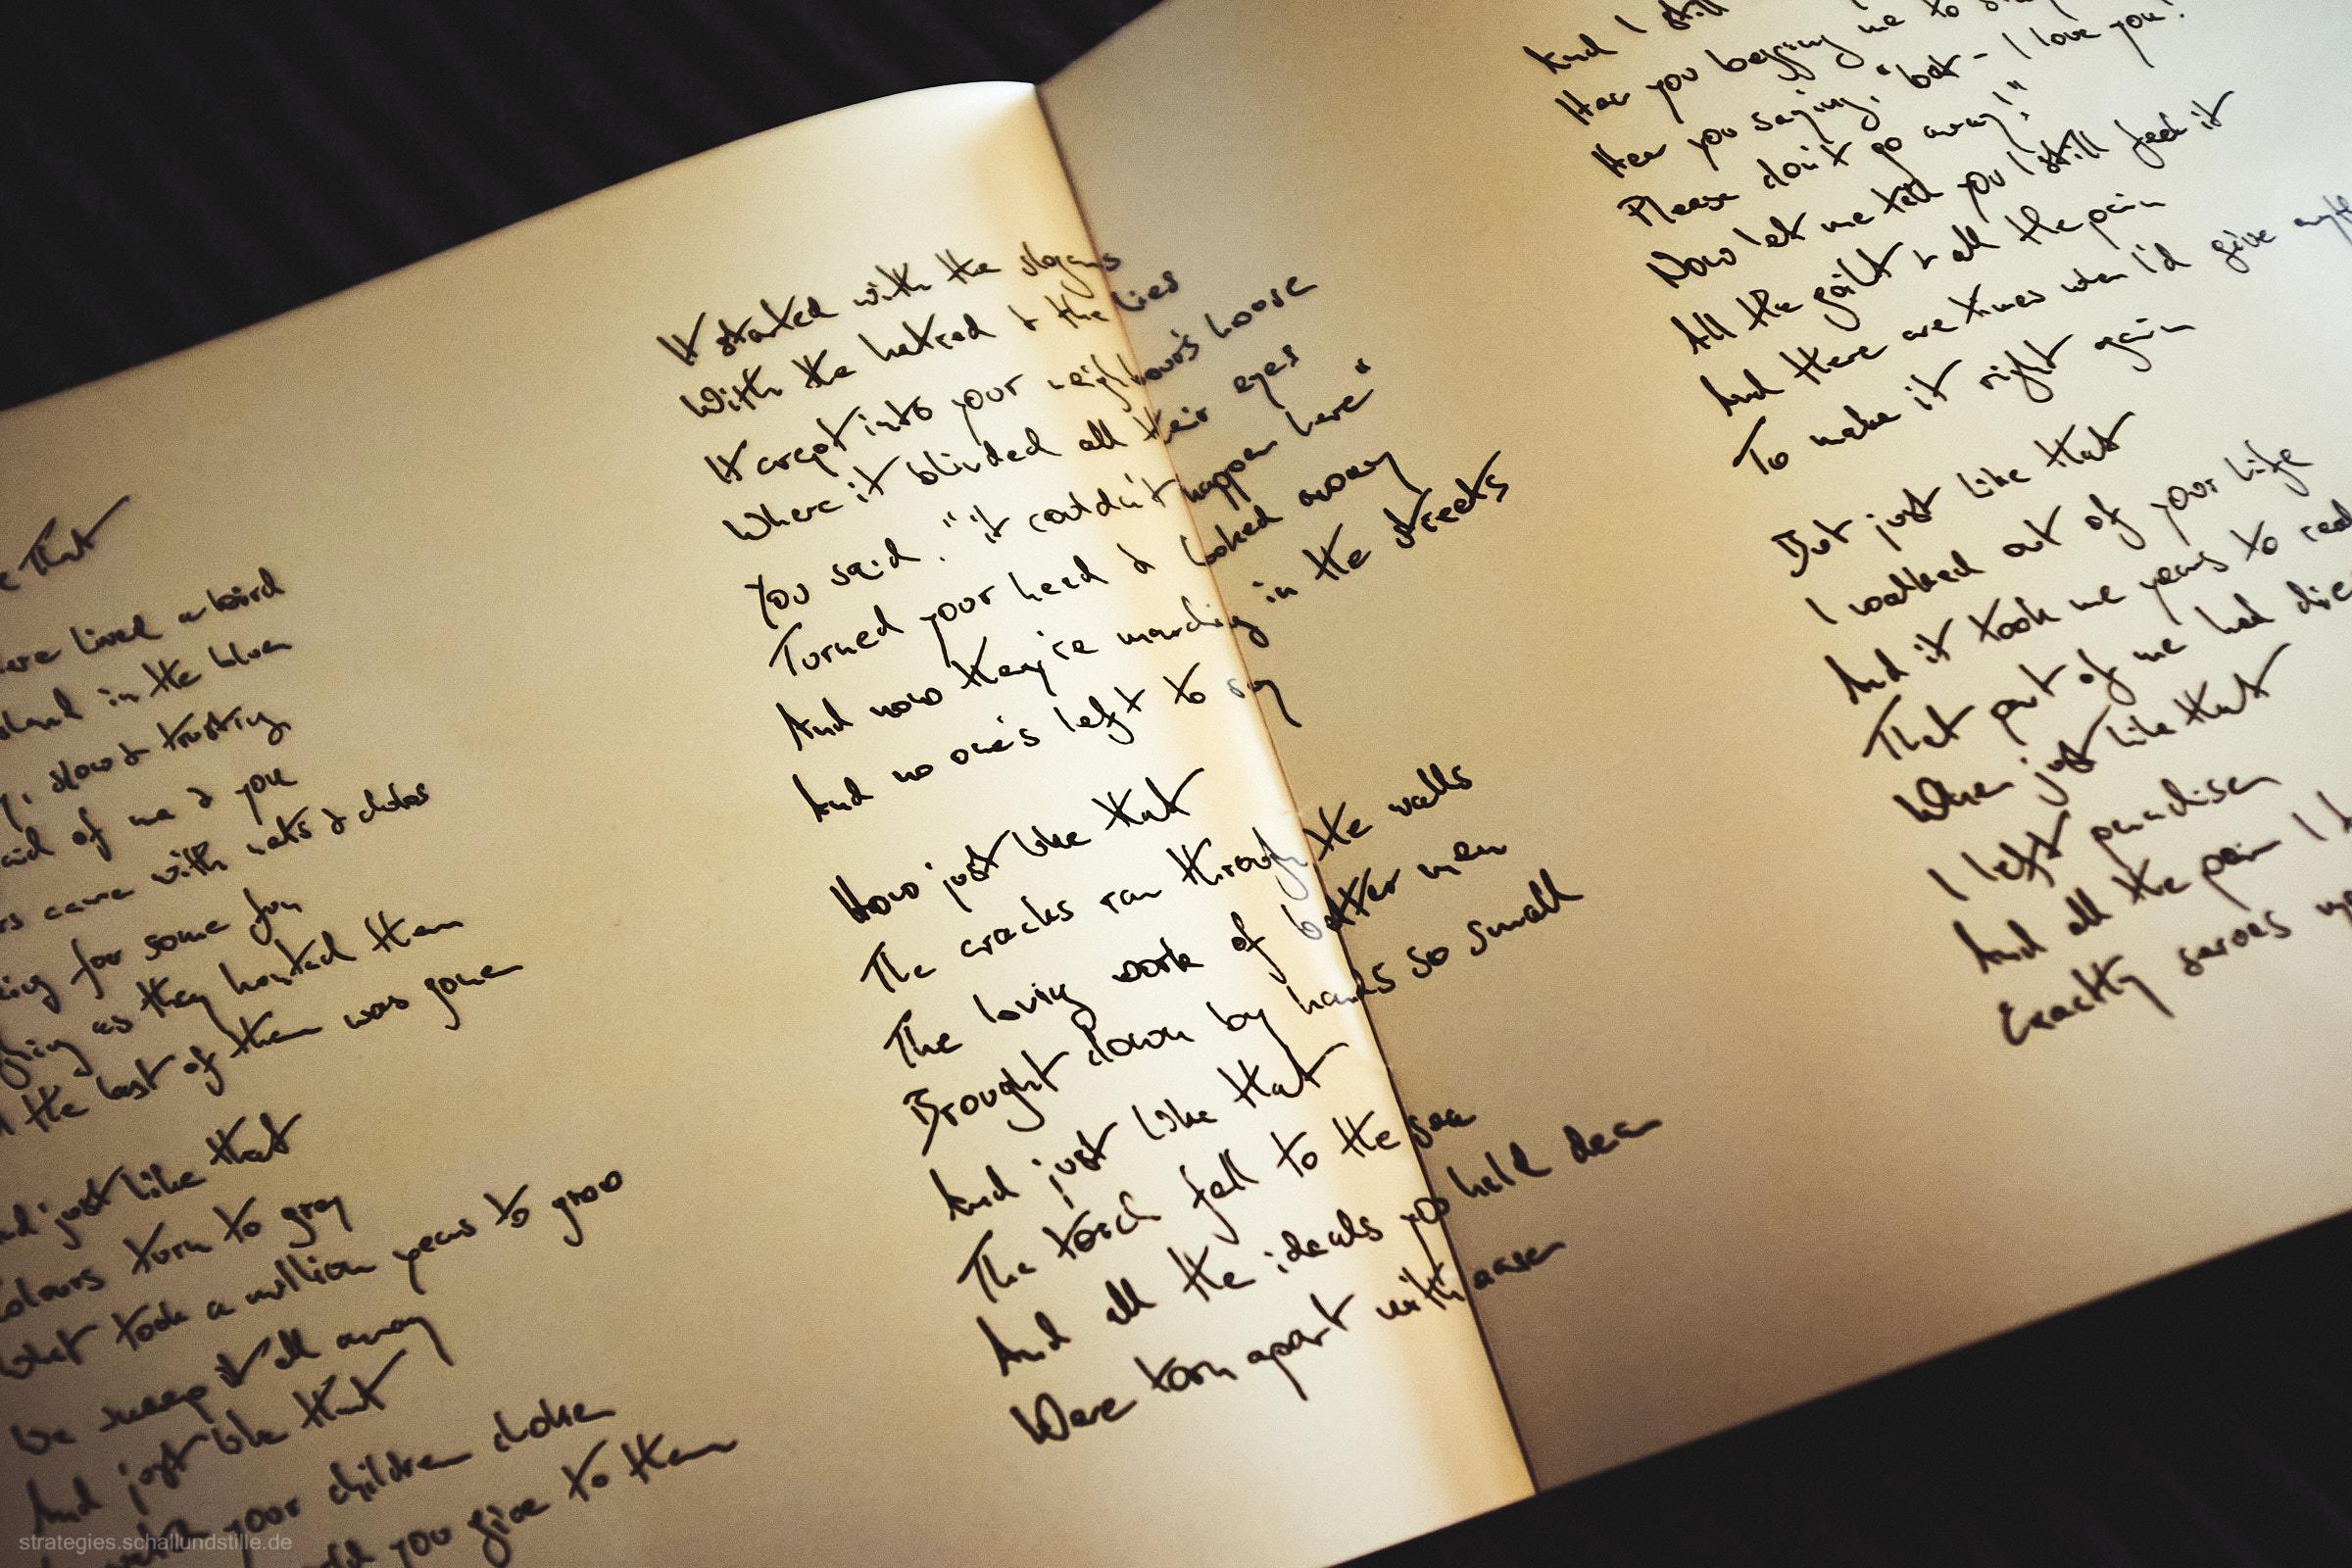 That
lived a bird
in the blue
slow & trusting
of me & you
came with nets & clubs
for some fun
as they hunted them
the last of them was gone
just like that
Colours turn to grey
What took a million years to grow
We sweep it all away
And just like that
your children choke
you give to them
It started with the slogans
With the hatred & the lies
It crept into your neighbour's house
Where it blinded all their eyes
You said: "it couldn't happen here"
Turned your head & looked away
And now they're marching in the streets
And no one's left to say
How just like that
The cracks ran through the walls
The loving work of better men
Brought down by hands so small
And just like that
The torch fell to the sea
And all the ideals you held dear
Were torn apart with ease
And I still
Hear you begging me to
Hear you saying, "but – I love you!
Please don't go away!"
Now let me tell you I still feel it
All the guilt & all the pain
And there are times when I'd give
To make it right again
But just like that
I walked out of your life
And it took me years to
That part of me had
When just like that
I left paradise
And all the pain I
Exactly serves
strategies.schallundstille.de